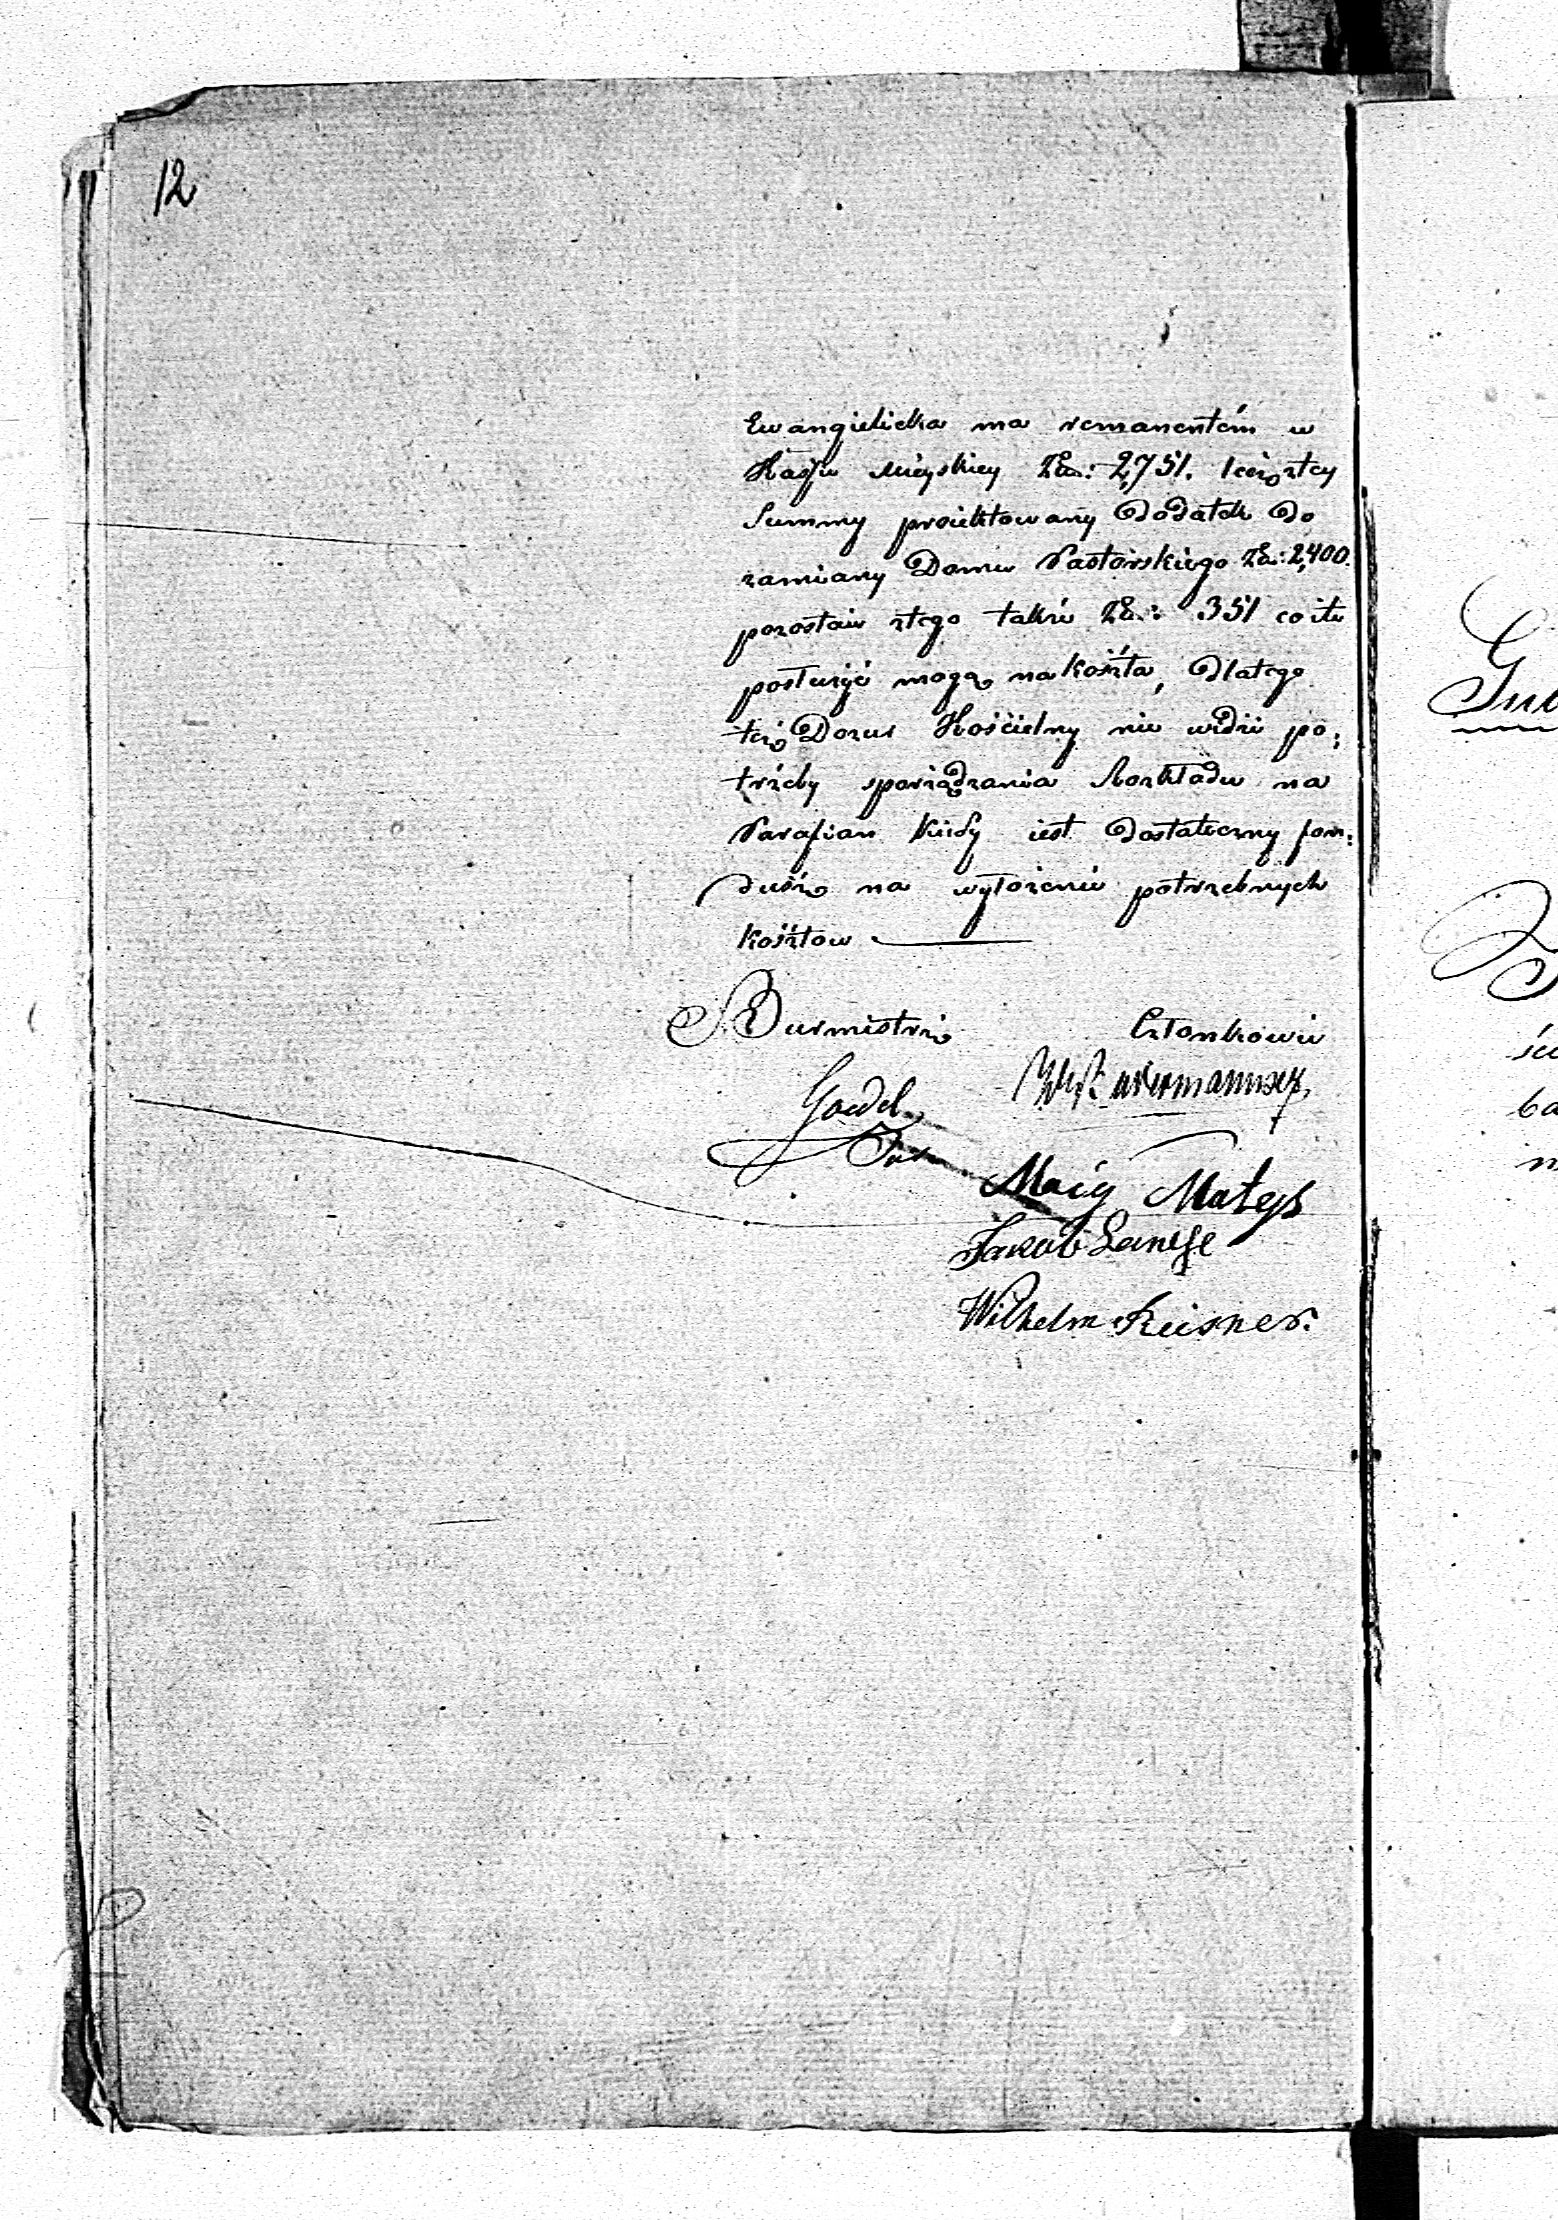 12
Ewangielicka ma remanentem w
Kassie Mieyskiey Zło: 2,751. leez ztey
Summy proiektowany Dodatek Do
zamiany Domu Pastorskiego Zło: 2,400.
pozostaie ztego także Zł: 351 co ite
posłużyć mogą na koszta, Dlatego
też Dozur Kościelny nie widzi po:
trzeby sporządzania Rozkładu na
Parafian kiedy iest Dostateczny fun:
dusz na wyłożenie potrzebnych
kosztow
Burmistrz Członkowie
Goedel
Maciy Matys
Jakob Lange
Wilhelm Reisner.